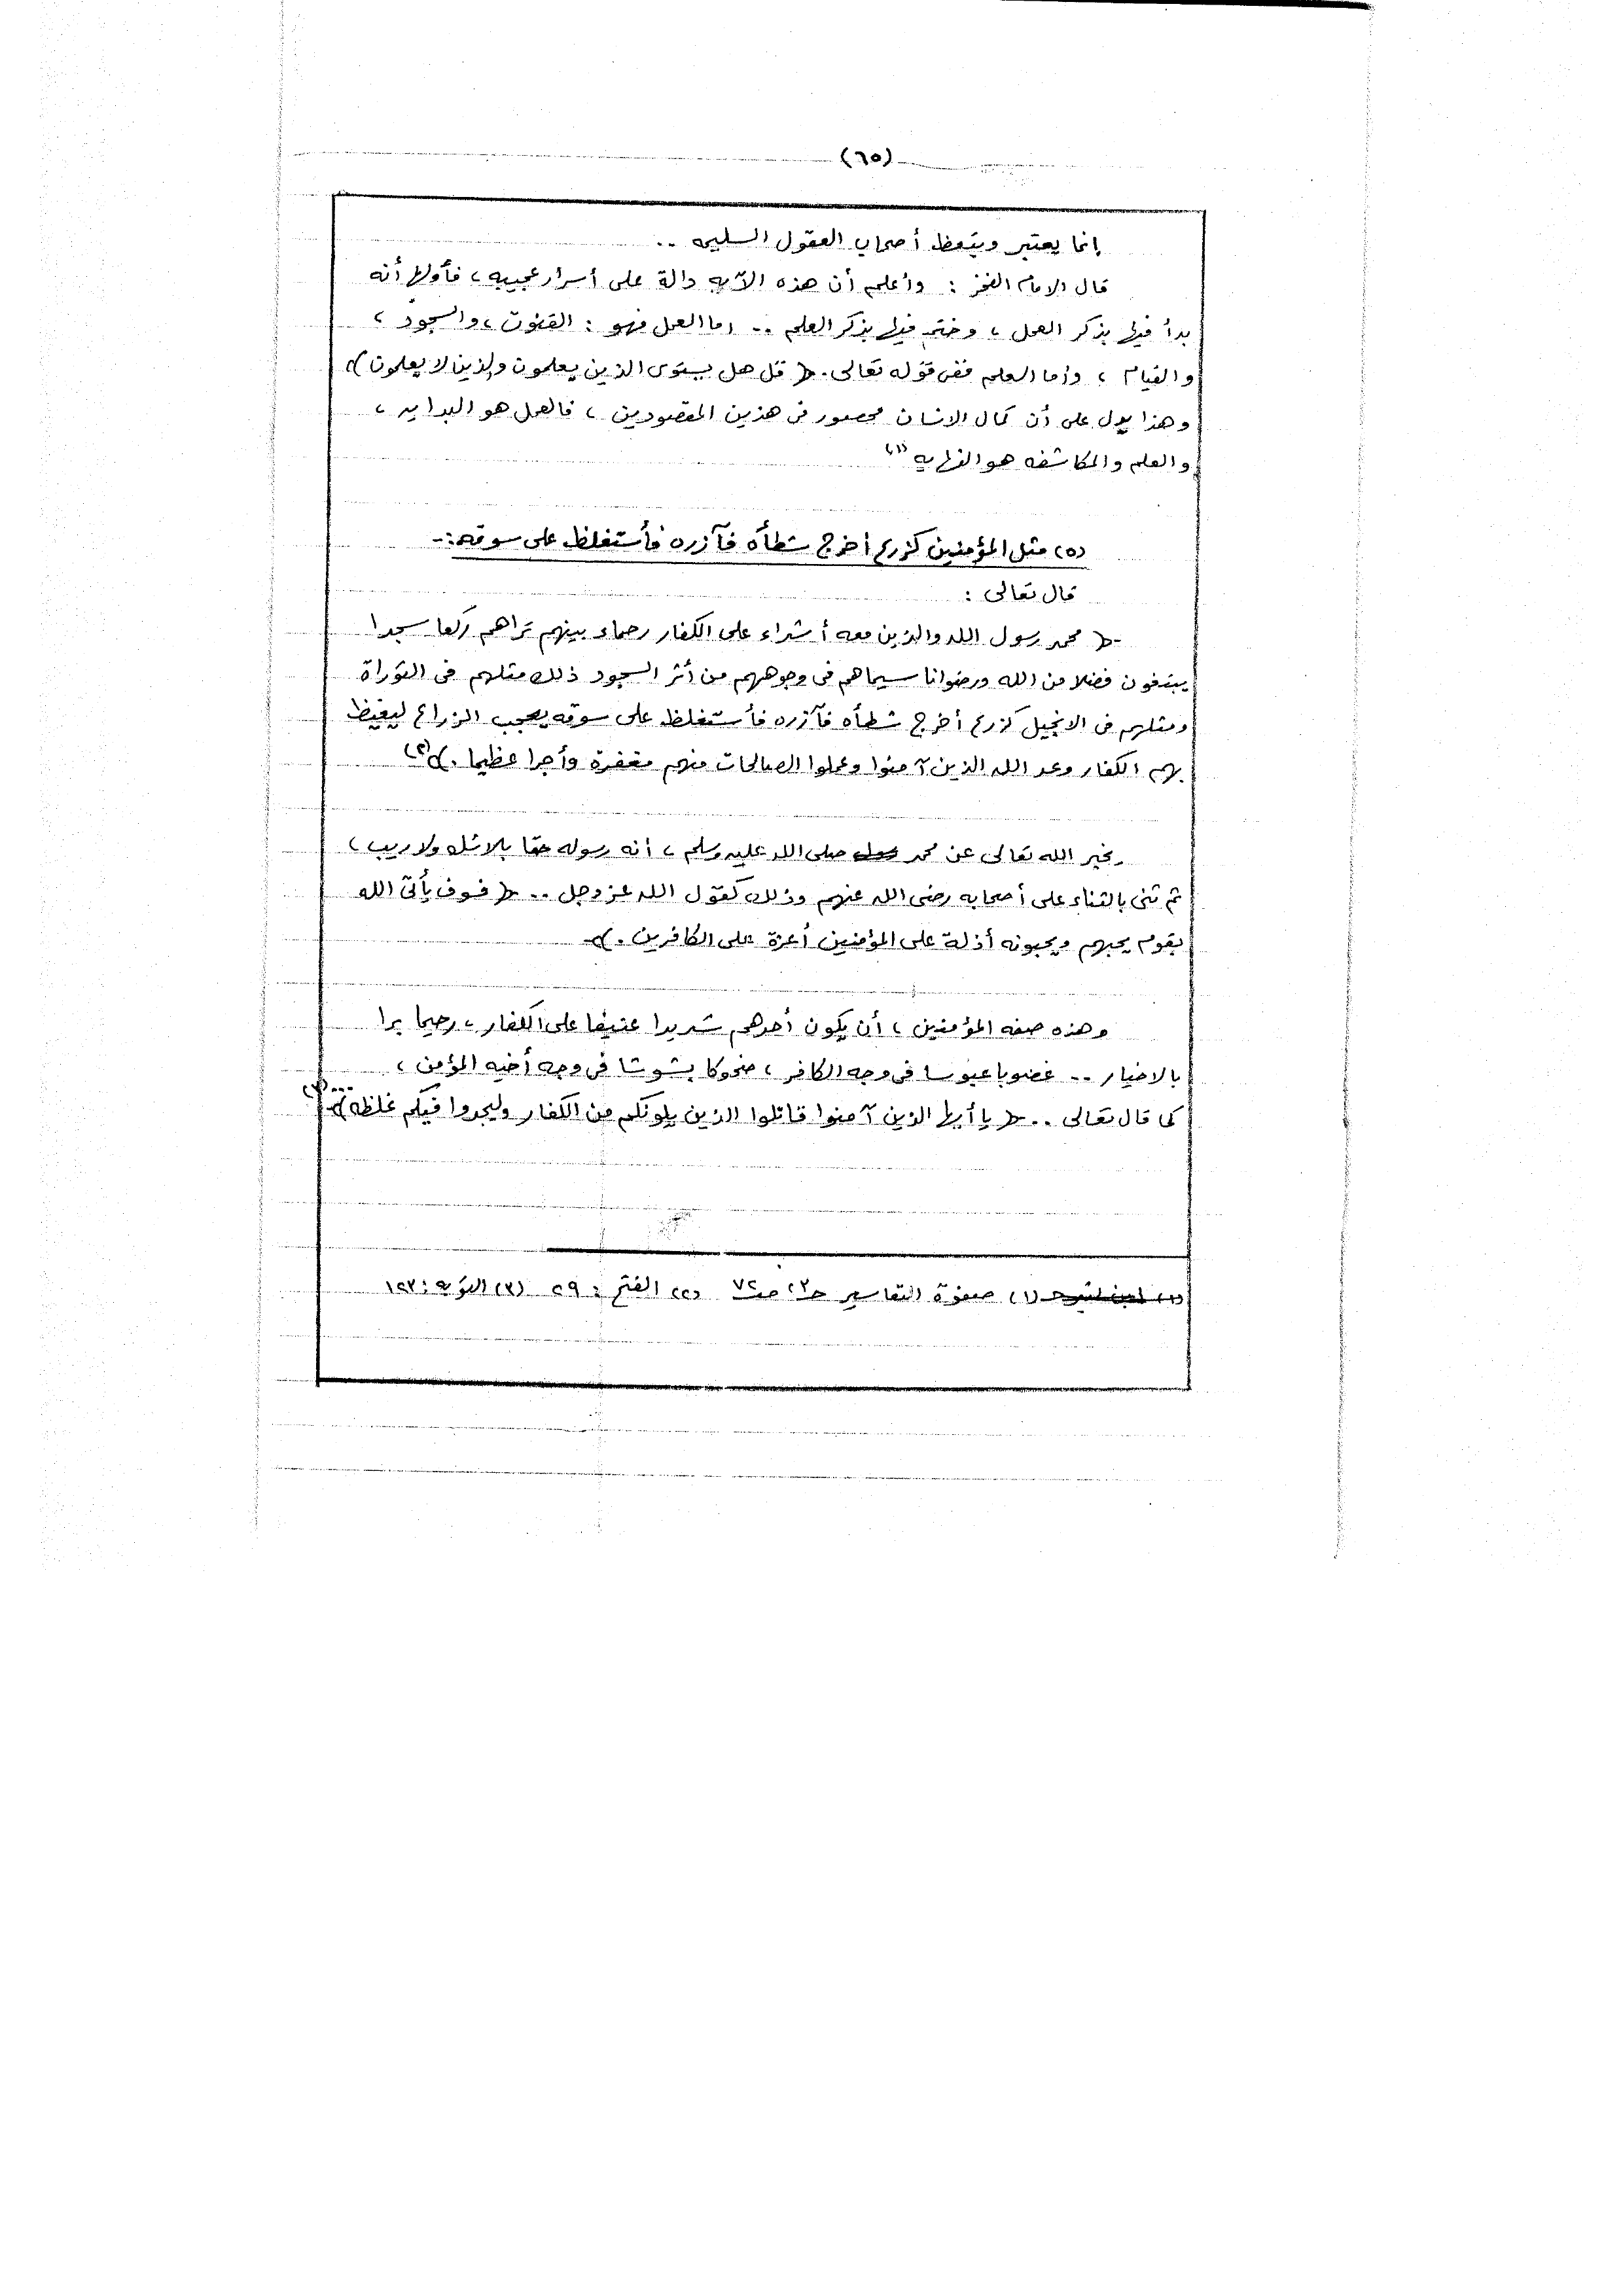 (٦٥)
إنما يعتبر ويتعظ أصحاب العقول السليمه ..
قال الامام الفخر : وأعلم أن هذه الآيه دالة على أسرار عجيبه ، فأولها أنه
بدأ فيها بذكر العمل ، وختم فيها بذكر العلم .. اما العمل فهو : القنوت ، والسجود ،
والقيام ، وأما العلم ففى قوله تعالى . ﴿ قل هل يستوى الذين يعلمون والذين لا يعلمون ﴾
وهذا يدل على أن كمال الانسان محصور فى هذين المقصودين ، فالعمل هو البدايه ،
والعلم والمكاشفه هو النهايه (١)
(٥) مثل المؤمنين كزرع أخرج شطأه فآزره فأستغلظ على سوقه :-
قال تعالى :
﴿ محمد رسول الله والذين معه أشداء على الكفار رحماء بينهم تراهم ركعا سجدا
يبتغون فضلا من الله ورضوانا سيماهم فى وجوههم من أثر السجود ذلك مثلهم فى التوراة
ومثلهم فى الانجيل كزرع أخرج شطأه فآزره فأستغلظ على سوقه يعجب الزراع ليغيظ
بهم الكفار وعد الله الذين آمنوا وعملوا الصالحات منهم مغفرة وأجرا عظيما . ﴾ (٢)
يخبر الله تعالى عن محمد صلى الله عليه وسلم ، أنه رسوله حقا بلا شك ولا ريب ،
ثم ثنى بالثناء على أصحابه رضى الله عنهم وذلك كقول الله عز وجل .. ﴿ فسوف يأتى الله
بقوم يحبهم ويحبونه أذلة على المؤمنين أعزة على الكافرين . ﴾
وهذه صفه المؤمنين ، أن يكون أحدهم شديدا عنيفا على الكفار ، رحيما برا
بالاخيار .. غضوبا عبوسا فى وجه الكافر ، ضحوكا بشوشا فى وجه أخيه المؤمن ،
كما قال تعالى .. ﴿ يا أيها الذين آمنوا قاتلوا الذين يلونكم من الكفار وليجدوا فيكم غلظه ﴾ ... (٣)
(١) صفوة التفاسير ح٣ ص٧٢ (٢) الفتح : ٢٩ (٣) التوبه : ١٢٣